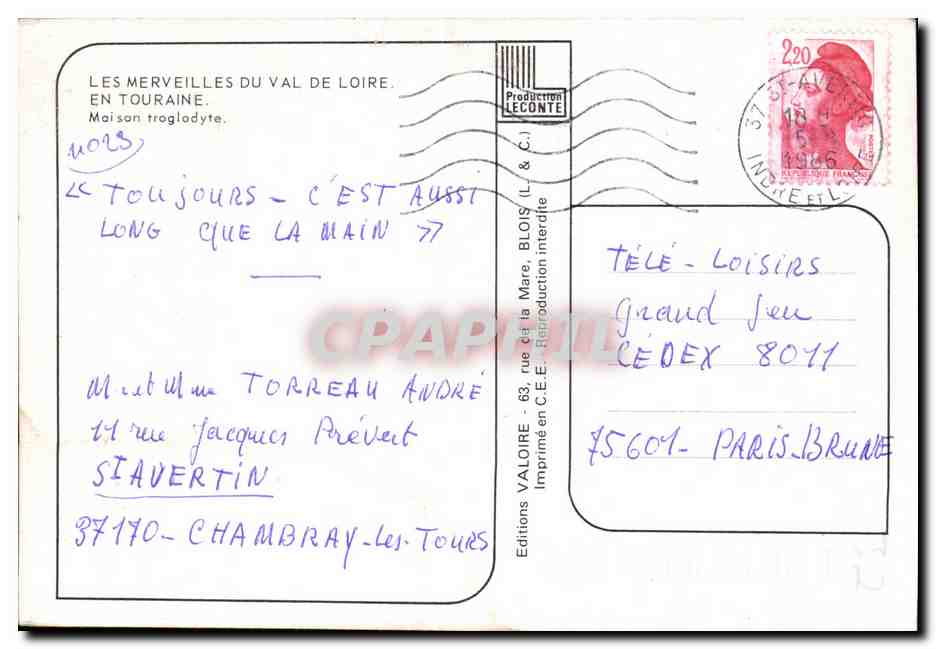 LES MERVEILLES DU VAL DE LOIRE.
EN TOURAINE.
Maison troglodyte.
11023
« TOUJOURS - C'EST AUSSI
LONG QUE LA MAIN »
M et Mme TORREAU ANDRÉ
11 rue Jacques Prévert
ST AVERTIN
37170 - CHAMBRAY-les-TOURS
Production
LECONTE
Editions VALOIRE - 63, rue de la Mare, BLOIS (L. & C.)
Imprimé en C.E.E. - Reproduction interdite
2,20
REPUBLIQUE FRANÇAISE
37 ST-AVERTIN
18 H
1986
INDRE ET L
TÉLÉ - LOISIRS
Grand Jeu
CÉDEX 8011
75601 - PARIS-BRUNE
CPAPHIL